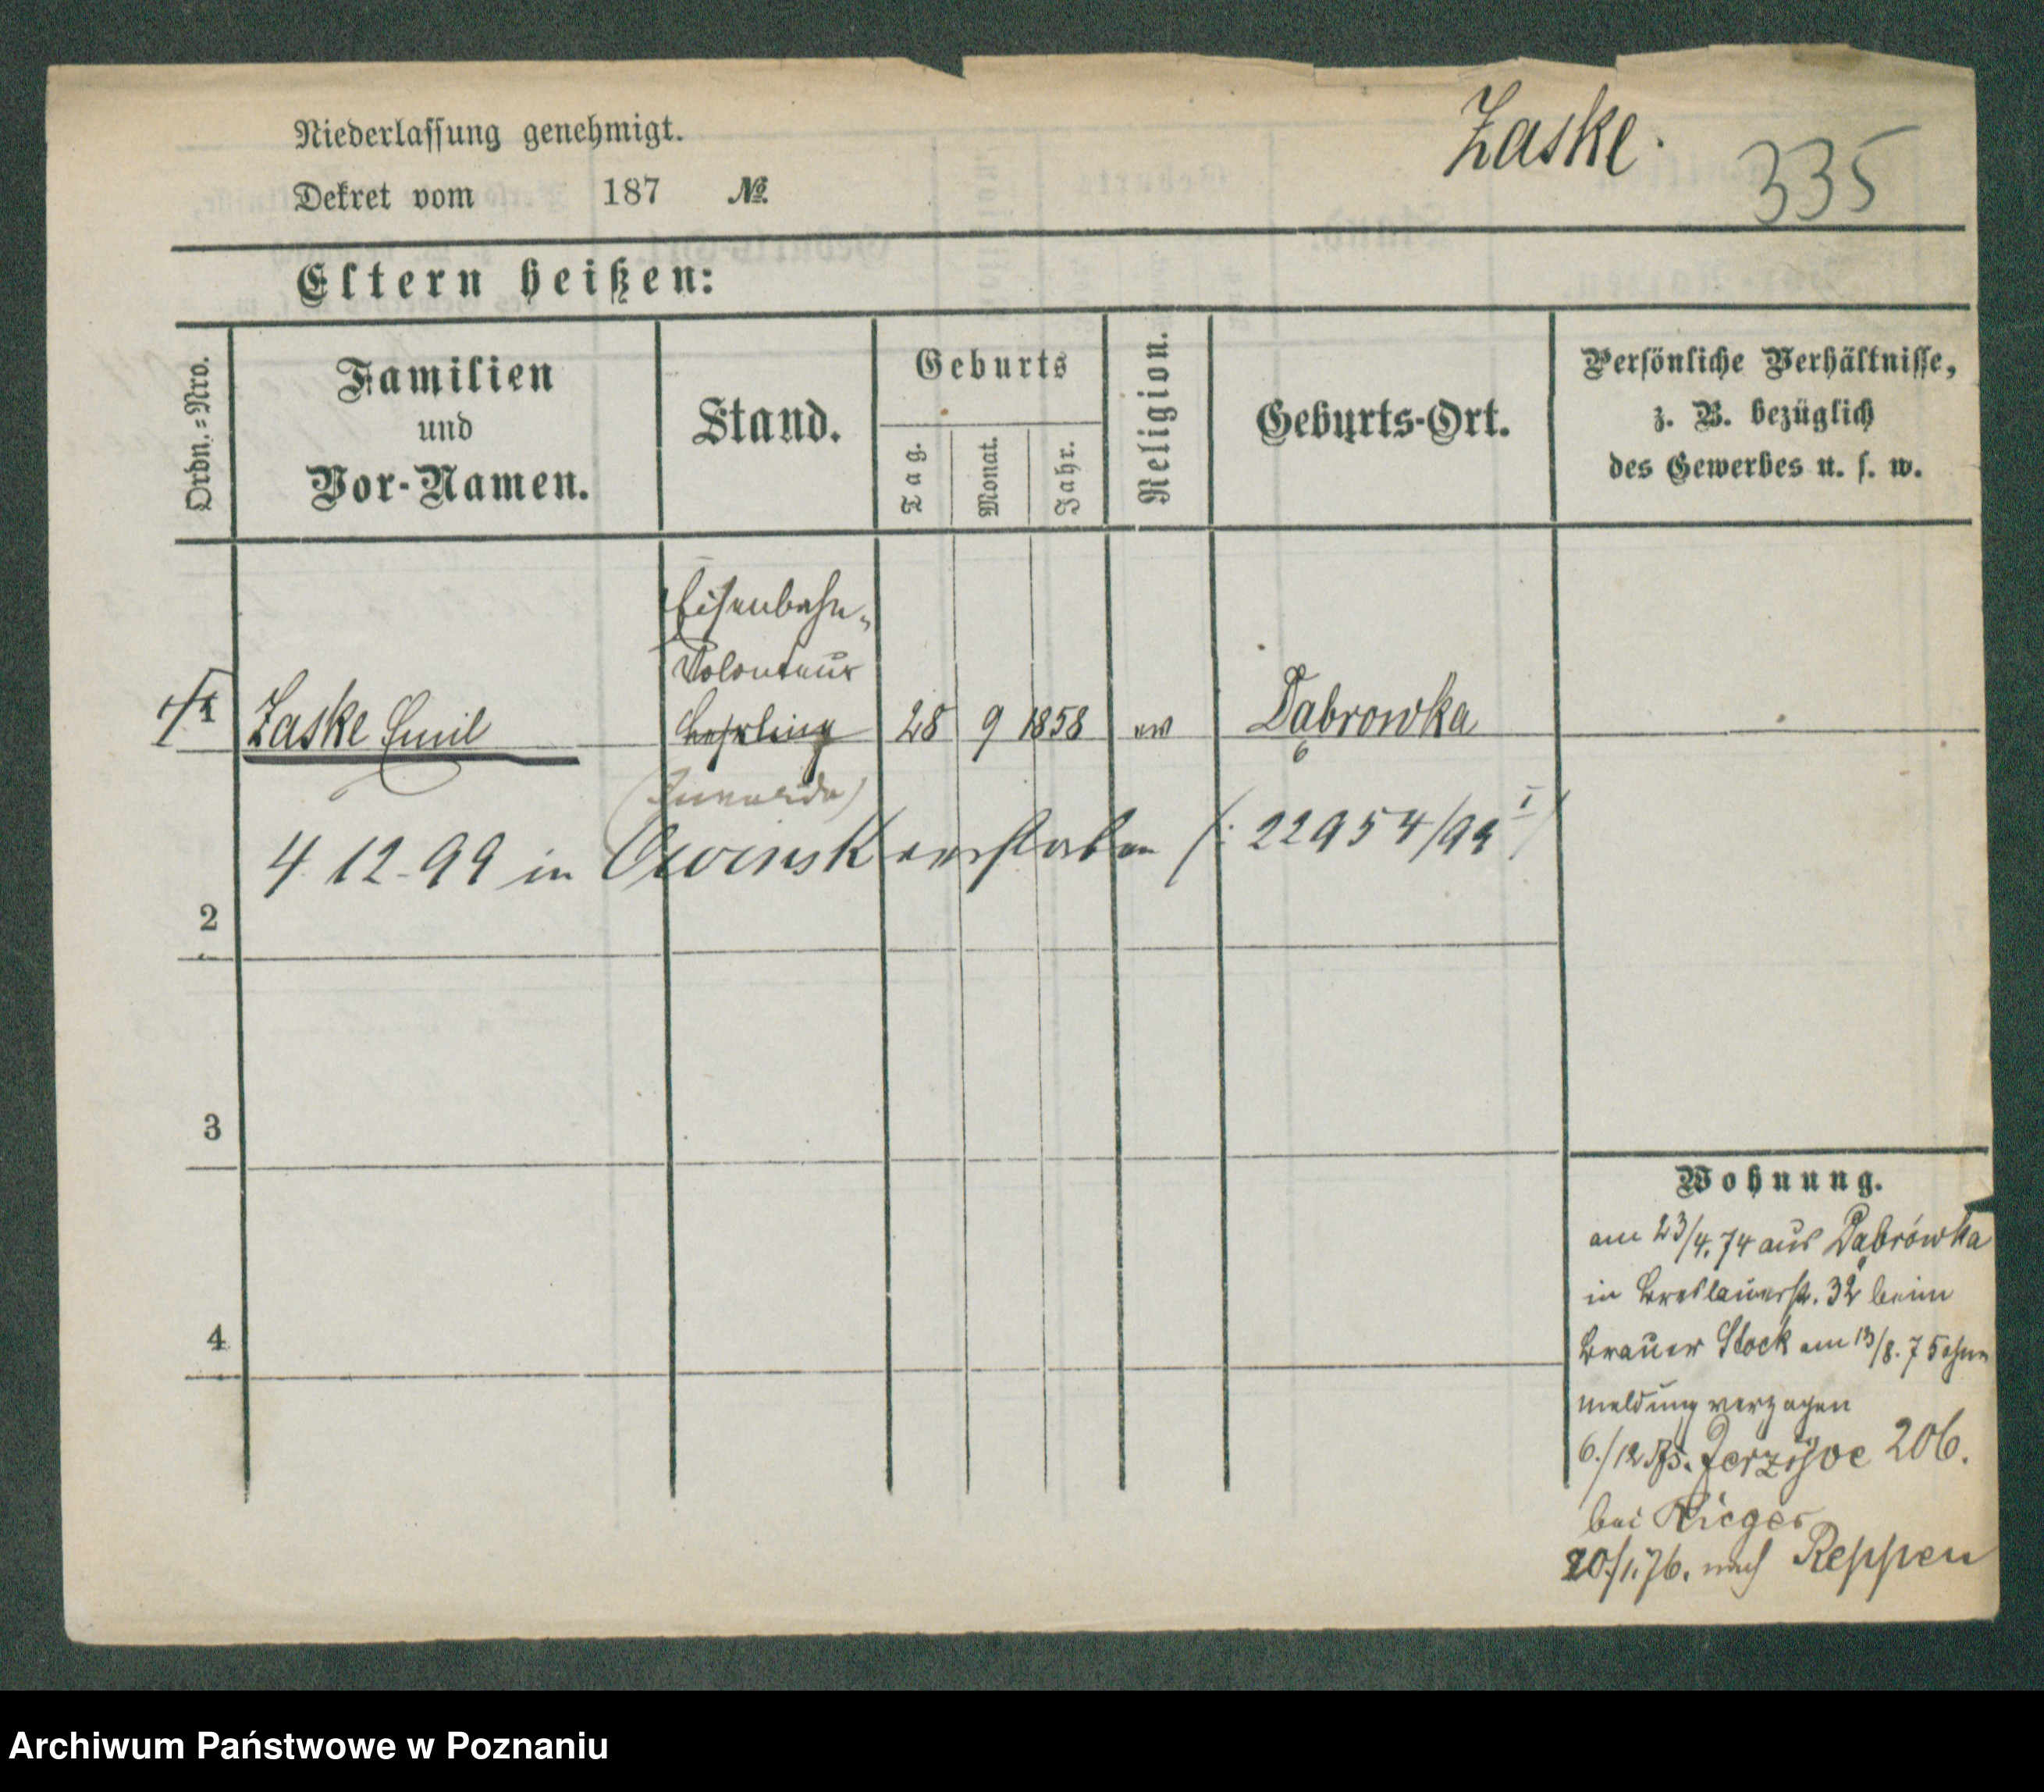 Niederlassung genehmigt.
Dekret vom 187 No.
Zaske.
335
Eltern heißen:
Ordn.=Nro.
Familien
und
Vor-Namen.
Stand.
Geburts
Tag.
Monat.
Jahr.
Religion.
Geburts-Ort.
Persönliche Verhältnisse,
z. B. bezüglich
des Gewerbes u. s. w.
Eisenbahn-
Volonteur
1 Zaske Emil Lehrling 28 9 1858 ev Dąbrowka
(Invalide)
4 12-99 in Owinsk verstorben (: 22954/99 I)
2
3
4
Wohnung.
am 23/4. 74 aus Dąbrówka
in Breslauerstr. 32 beim
Brauer Stock am 13/8. 75 ohne
meldung verzogen
6./12 75. Jerzyce 206.
bei Rieger
20/1.76. nach Reppen
Archiwum Państwowe w Poznaniu